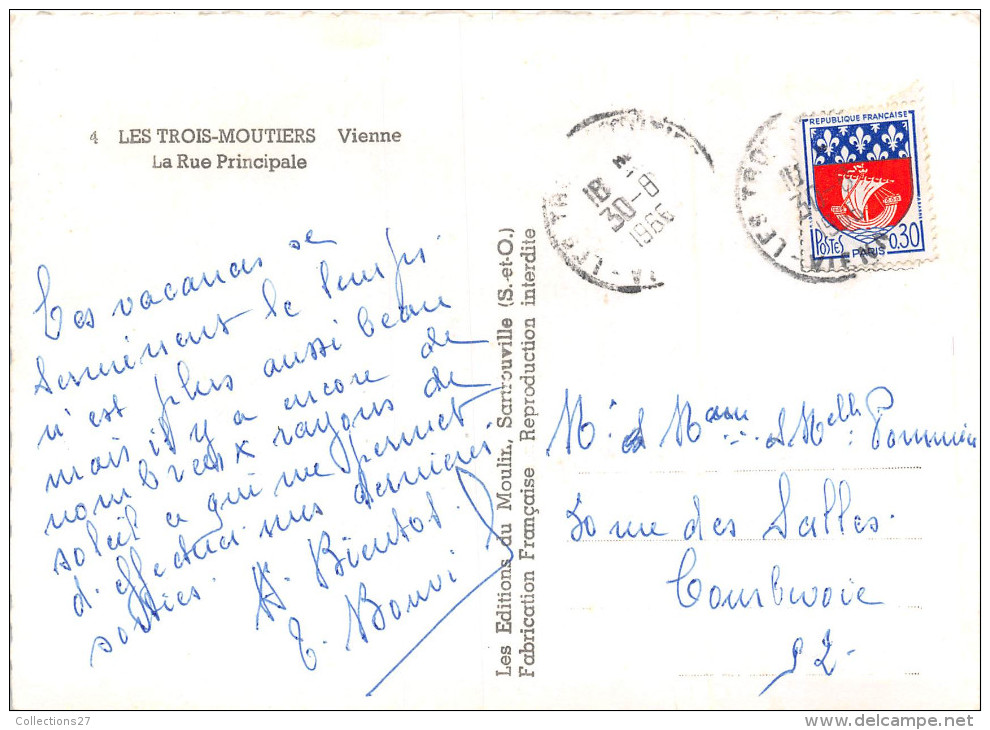 4 LES TROIS-MOUTIERS Vienne
La Rue Principale
vacances se
terminent le temps
n'est plus aussi beau
mais il y a encore de
nombreux rayons de
soleil ce qui me permet
d'effectuer mes dernières
sorties.
A. Bientot.
Les Editions du Moulin, Sartrouville (S.-et-O.)
Fabrication Française - Reproduction interdite
18 H
30-8
1966
REPUBLIQUE FRANÇAISE
POSTES
0.30
PARIS
M. et Mme et Melle
rue des Salles.
Courbevoie
92-
Collections27
www.delcampe.net